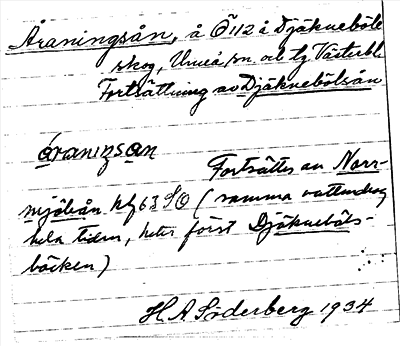 Åraningsån, å Ö 112 å Djäkneböle
skog, Umeå sn. och lg Västerb.
Fortsättning av Djäknebölsån
åraniŋsan
Fortsättes av Norr-
mjölsån hfg 63 SO (samma vattendrag
hela tiden, heter först Djäknebøls-
bäcken)
H.A. Söderberg 1934